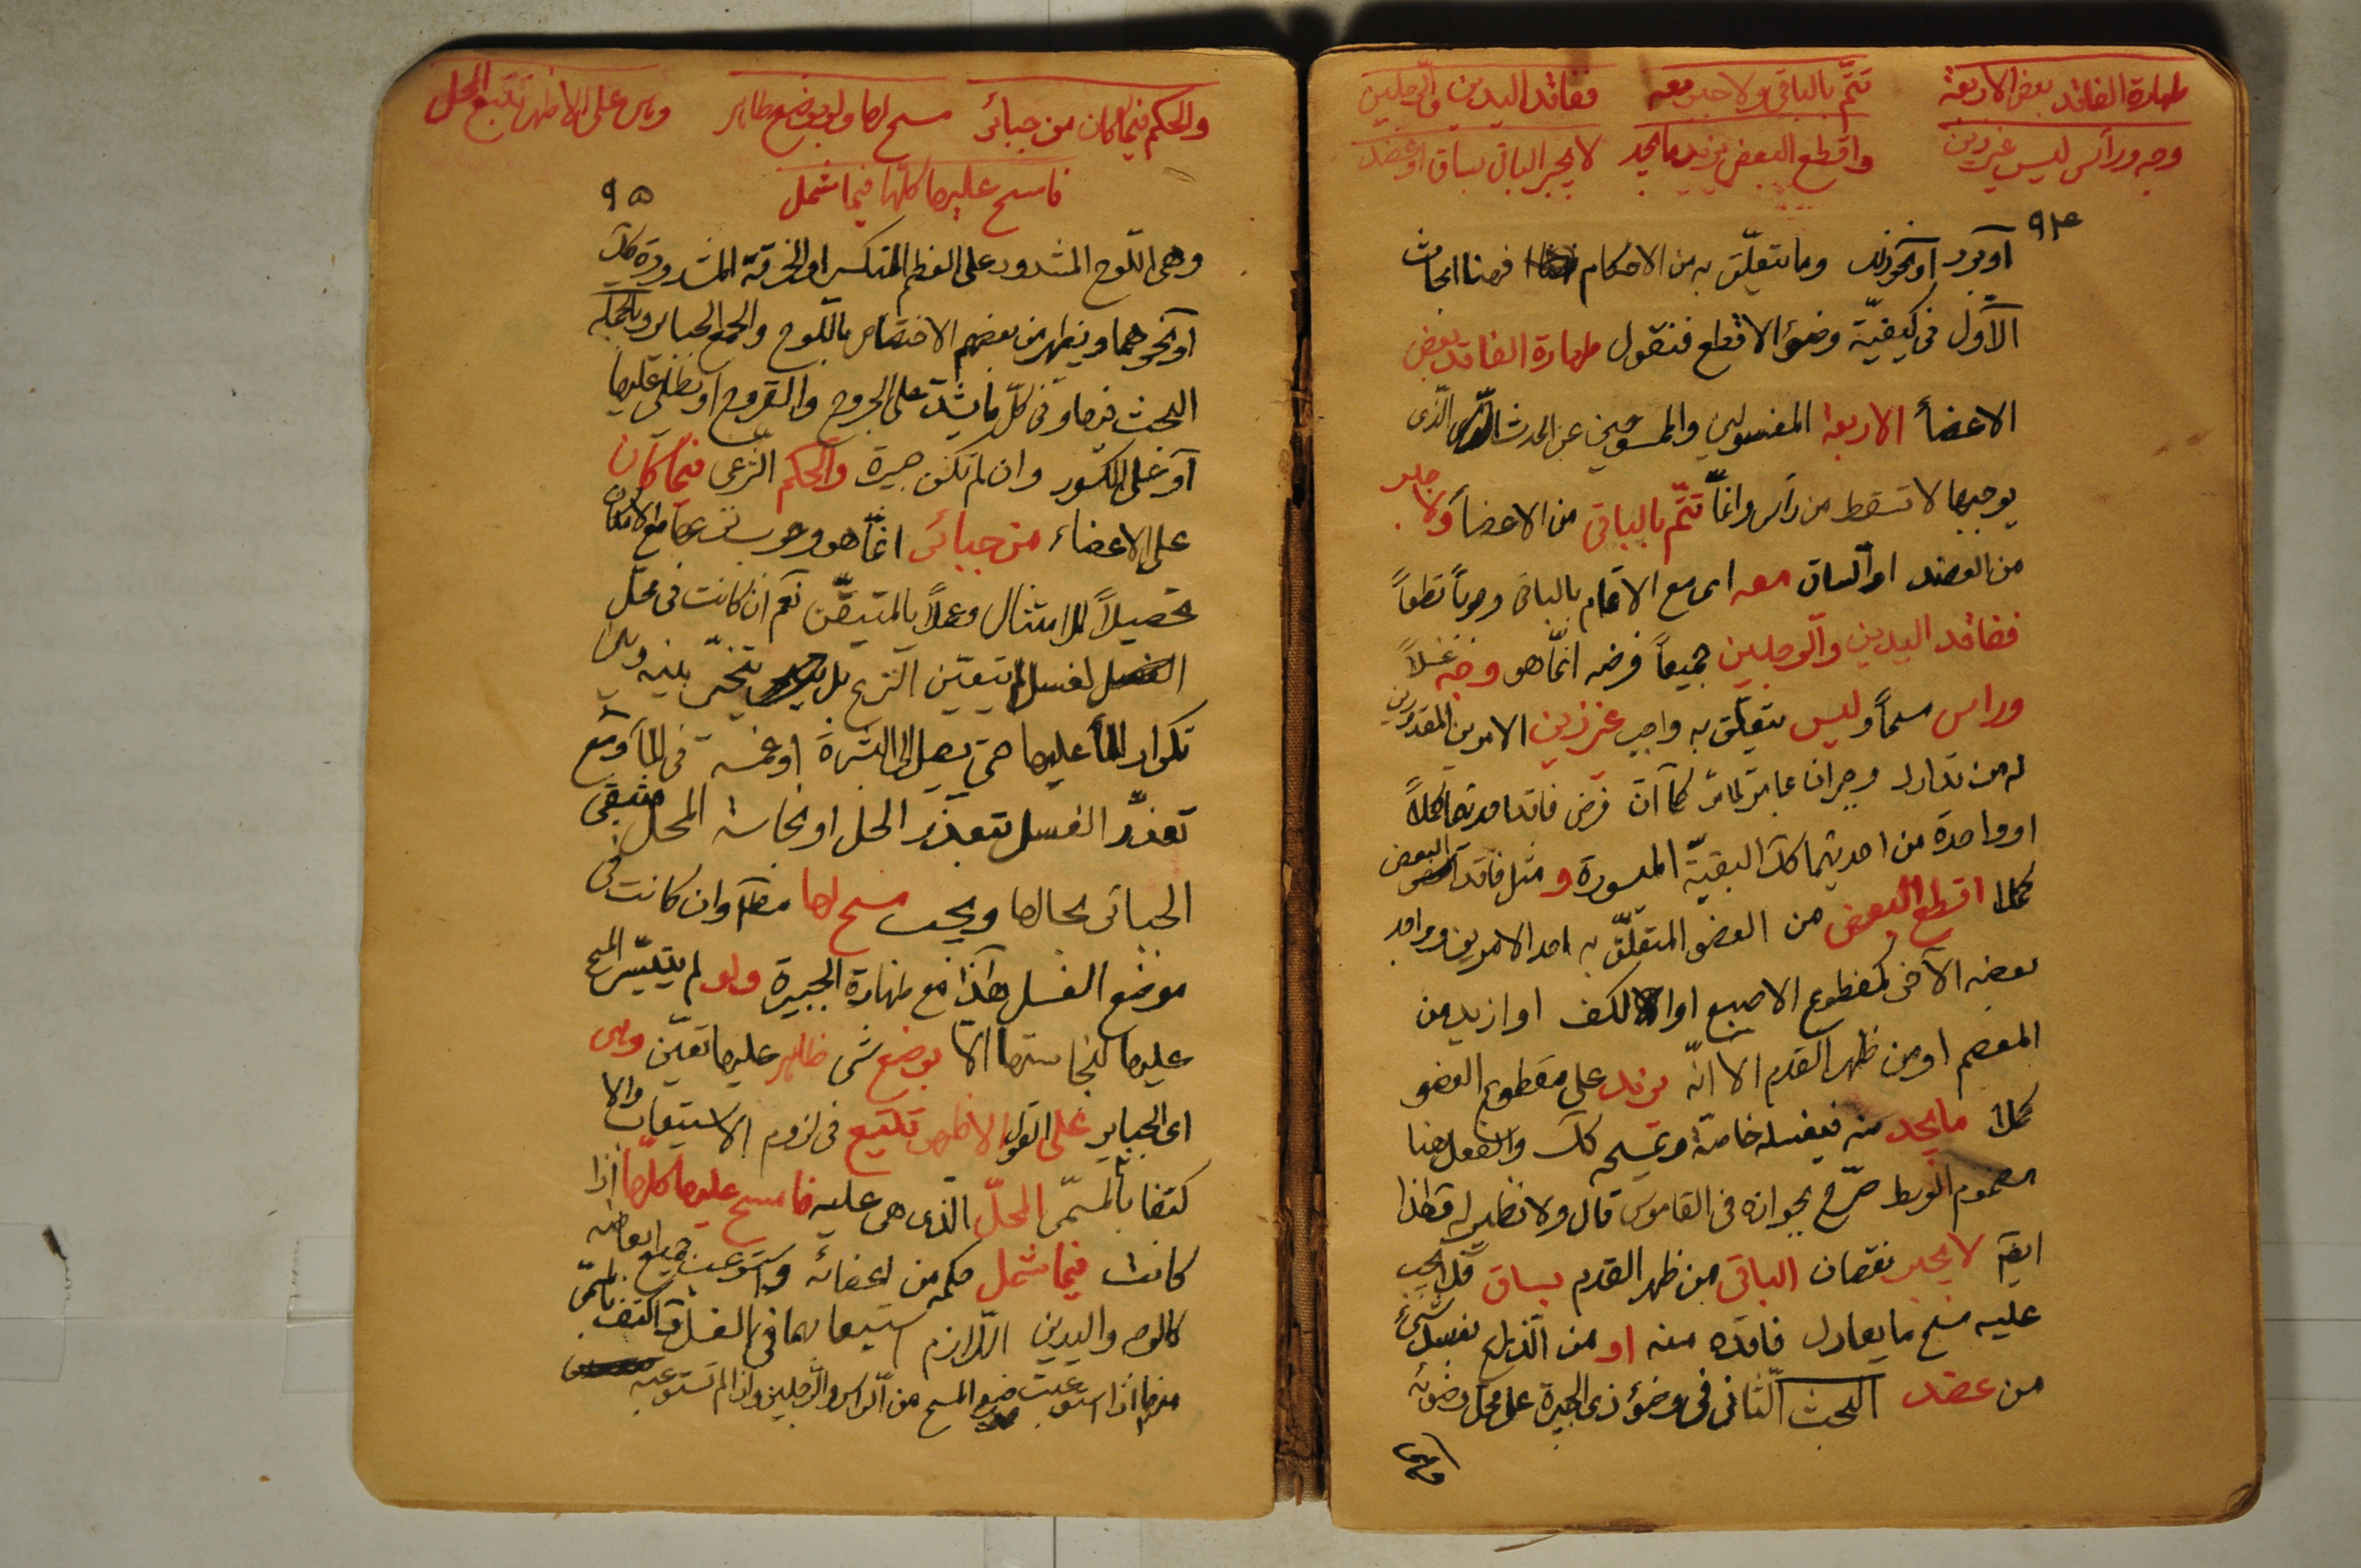 طهارة الفاقد بعض الاربعة تتمّ بالباقى ولا جبر معه ففاقد اليدين والرجلين
وجه ورأس ليس غيرذين واقطع البعض يزيد ما يجد لا يجبر الباقى بساق او عضد
٩٤
او برد او نحو ذلك وما يتعلّق به من الاحكام فهنا ابحاث
الاوّل فى كيفيّة وضوء الاقطع فنقول طهارة الفاقد بعض
الاعضأ الاربعة المغسولين والممسوحين عن الحدث الذى
يوجبها لا تسقط من رأس وانمّا تتمّ بالباقى من الاعضأ ولا جبر
من العضد او الساق معه اى مع الاتمام بالباقى وجوباً قطعاً
ففاقد اليدين والرجلين جميعاً فرضه انمّا هو وجه غسلاً
وراس مسحاً وليس يتعلّق به واجب غيرذين الامرين المقدورين
له من تدارك وجبران كما انّ فرض فاقد احديهما كملاً
او واحدة من احديهما كك البقيّة الميسورة و مثل فاقد البعض
كملا اقطع البعض من العضو المتعلّق به احد الامرين وواجد
بعضه الآخر كمقطوع الاصبع او الكف او ازيد من
المعصم او من ظهر القدم الا انّه يزيد على مقطوع العضو
كملا ما يجد منه فيغسله خاصة ويمسحه كك والفعل هنا
مضموم الوسط صرّح بجوازه فى القاموس قال ولا نظير له قط اذا
ايضا لا يجبر نقصان الباقى من ظهر القدم بساق فلا يجب
عليه مسح ما يعادل فاقده منه او من الذراع بغسل شئ
من عضد البحث الثانى فى وضوء ذى الجبيرة على محل وضوئه
وهى
والحكم فيما كان من جبائر مسح لها ولو بوضع طاهر وهى على الاظهر تتبع المحل
فامسح عليها كلّها فيما شمل
٩٥
وهى اللّوح المشدود على العظم المنكسر او الخرقة المشدودة كك
او نحوهما ويظهر من بعضهم الاختصاص باللّوح والجمع الجبائر وبالجملة
البحث فيها وفى كلّ ما يشدّ على الجروح والقروح او يطلى عليها
او على الكسور وان لم تكن جبيرة والحكم الشرعى فيما كان
على الاعضاء من جبائر انمّا هو وجوب نزعها مع الامكان
تحصيلاً للامتثال وعملاً بالمتيقّن نعم ان كانت فى محل
لغسل لم يتعيّن النزع بل يتخيّر بينه وبين
تكرار المأ عليها حتى يصل الى البشرة او غمسه فى المآ ومع
تعذّر الغسل بتعذّر الحل او نجاسة المحل فتبقى
الجبائر بحالها ويجب مسح لها مط وان كانت فى
موضع الغسل هذا مع طهارة الجبيرة ولو لم يتيسّر المسح
عليها لنجاستها الا بوضع شى طاهر عليها تعيّن وهى
اى الجباير على القول الاظهر تتبع فى لزوم الاستيعاب والا
كتفا بالمسمّى المحلّ الذى هى عليه فامسح عليها كلّها اذا
كانت فيما شمل حكمه من اعضائه واستوعب جميع ابعاضه
كالوجه واليدين اللّازم استيعابهما فى الغسل واكتف بالمسمّى
منها اذا استوعبت موضع المسح من الراس والرجلين واذا لم تستوعبه